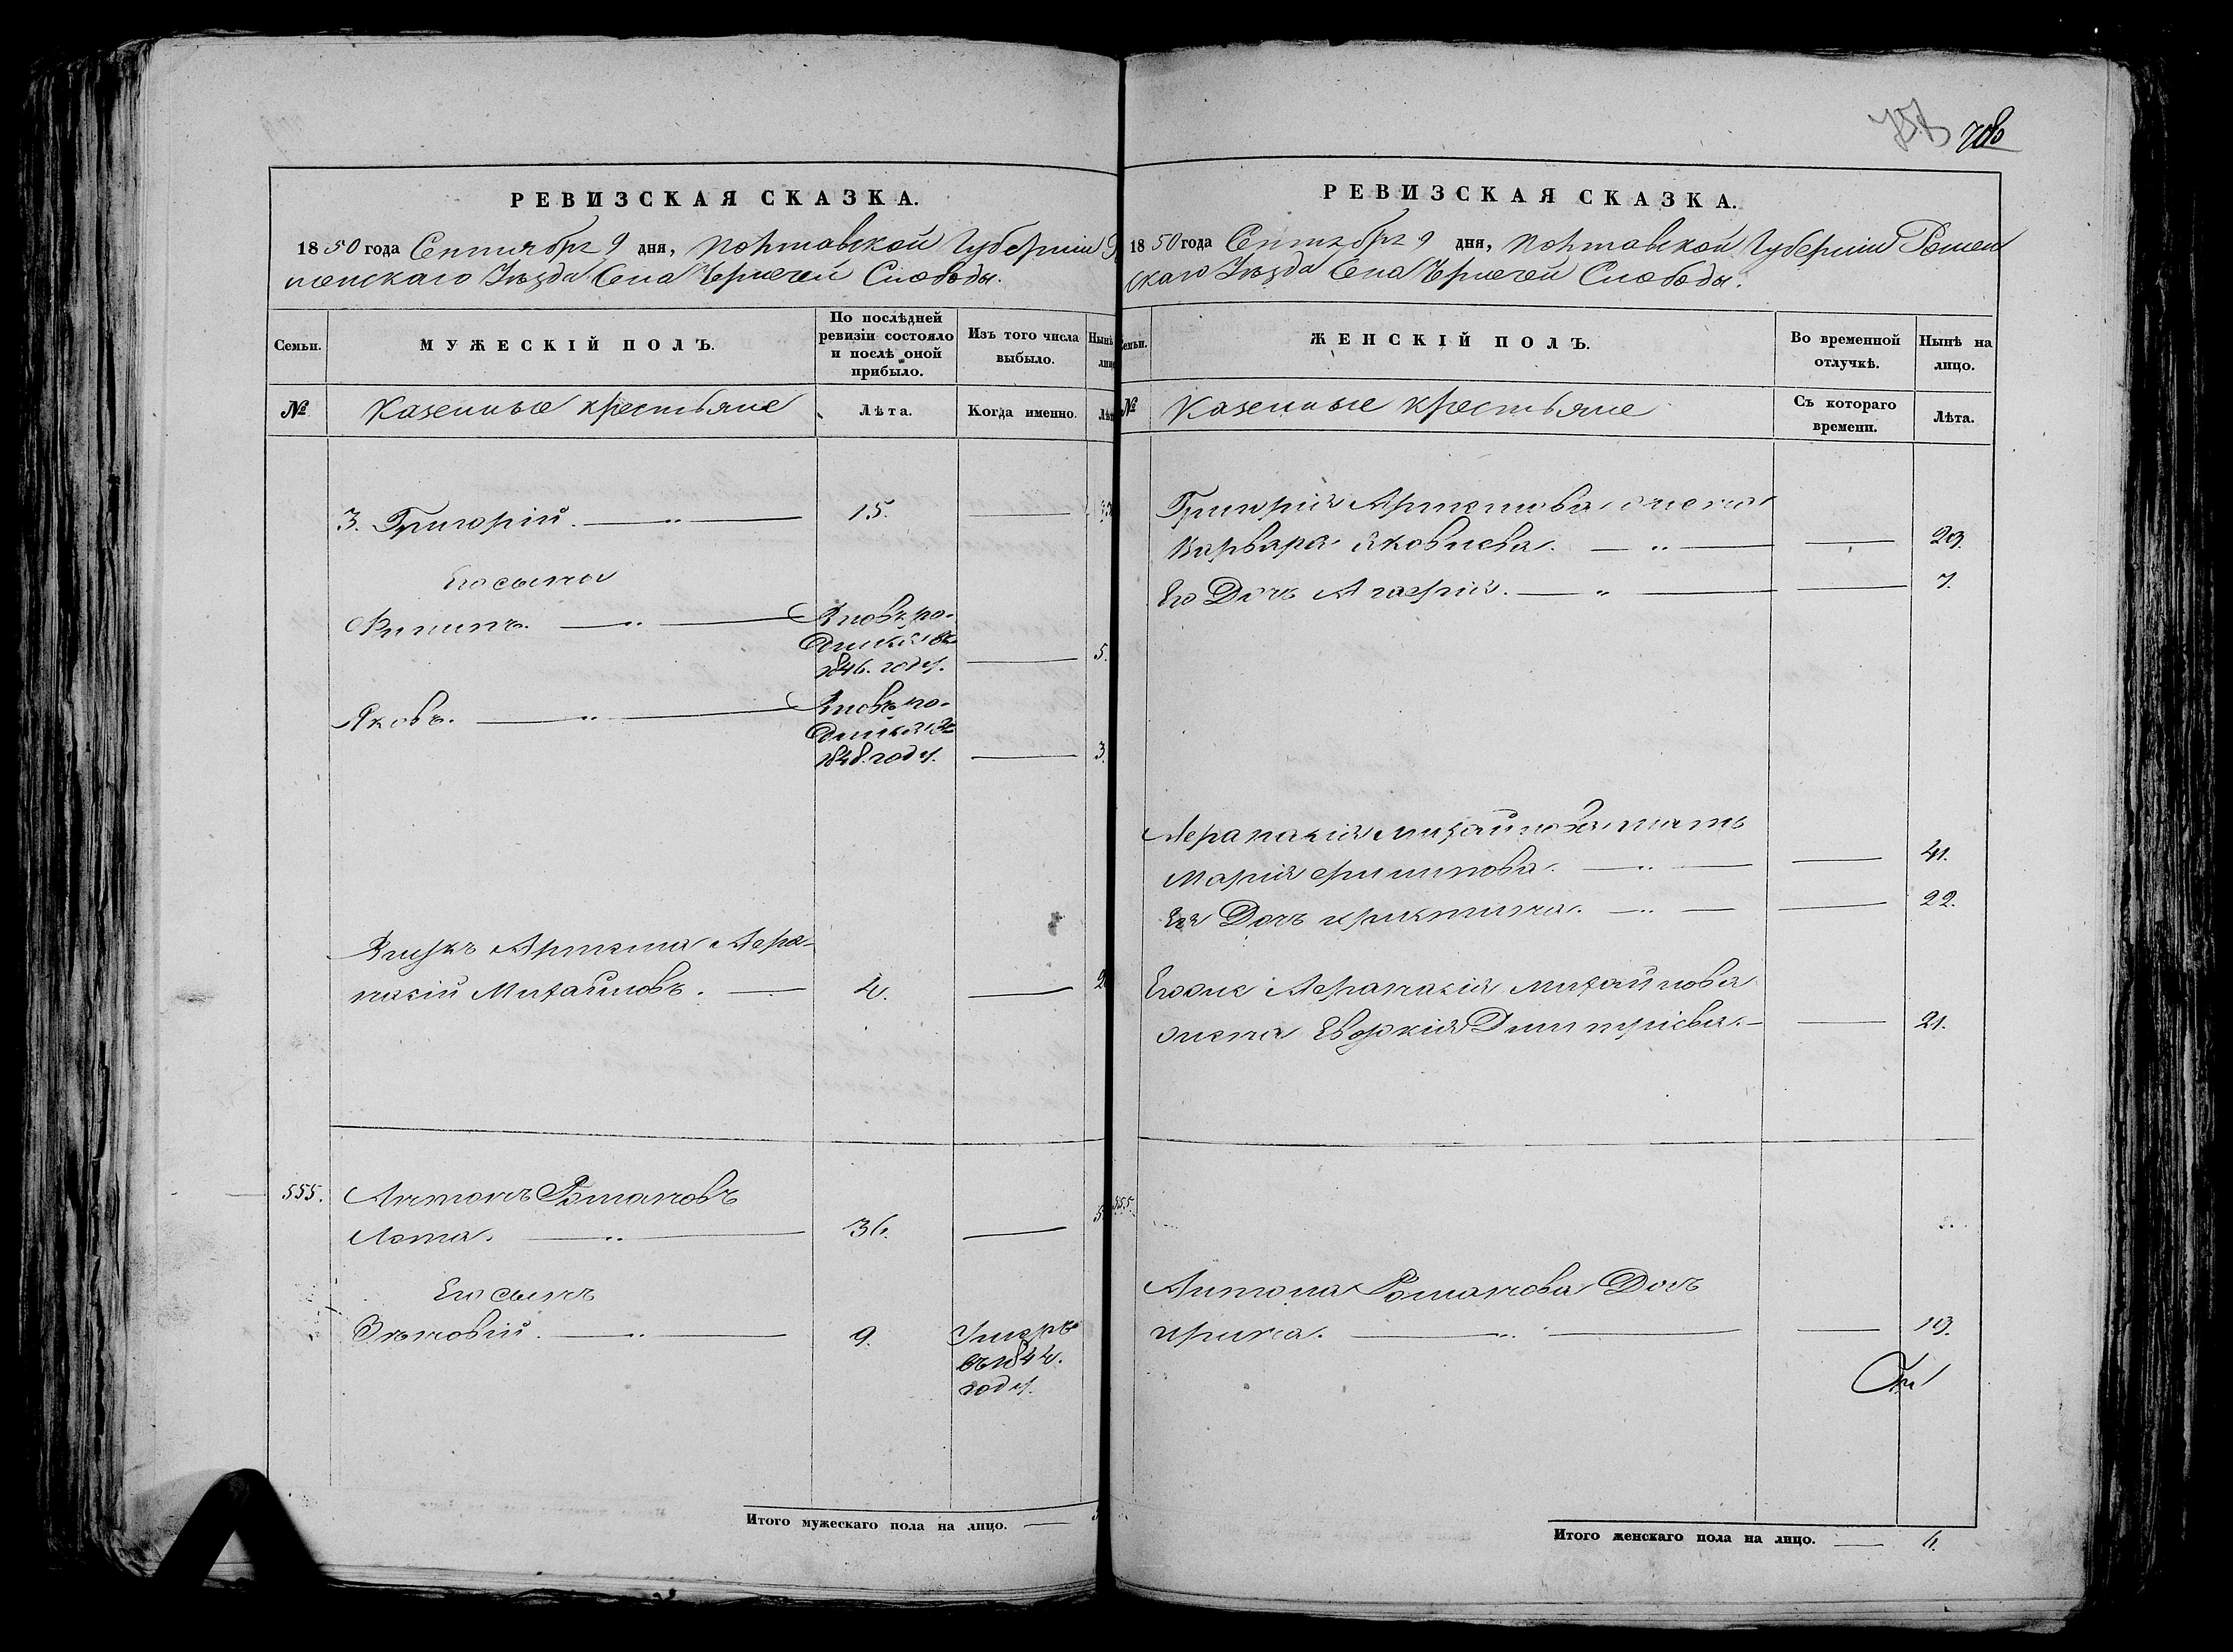 708
РЕВИЗСКАЯ СКАЗКА.
1850 года Сентября 9 дня, Полтавской Губерніи Ро
менскаго Уѣзда Села Чернечей Слободы.
Семьи.
МУЖЕСКІЙ ПОЛЪ.
По послѣдней ревизіи состояло и послѣ оной прибыло.
Изъ того числа выбыло.
Нынѣ
лицо
№
Казенные крестьяне
Лѣта.
Когда именно.
Лѣт
3. Григорій. 15.
Его сыновья
Филипъ. Вновь ро-
дился въ
1846. году. 5.
Яковъ. Вновь ро-
дился въ
1848. году. 3.
Внукъ Артема Аѳа-
насій Михайловъ. 4. 2
555. Антонъ Романовъ
Лота. 36.
Его сынъ
9. Умеръ
въ 1844.
году.
Итого мужескаго пола на лицо.
РЕВИЗСКАЯ СКАЗКА.
1850 года Сентября 9 дня, Полтавской Губерніи Ромен
скаго Уѣзда Села Чернечей Слободы.
Семьи.
ЖЕНСКІЙ ПОЛЪ.
Во временной отлучкѣ.
Нынѣ на лицо.
№
Казенные крестьяне
Съ котораго времени.
Лѣта.
Григорія Артемова жена
Варвара Яковлева. 29.
Его Дочь 7.
Аѳанасія Михайлова мать
Марія Филипова. 41.
Ея Дочь Христина. 22.
Его же Аѳанасія Михайлова
жена Евдокія Дмитріева. 21.
555.
Антона Романова Дочь
Ирина. 19.
Итого женскаго пола на лицо. 6.